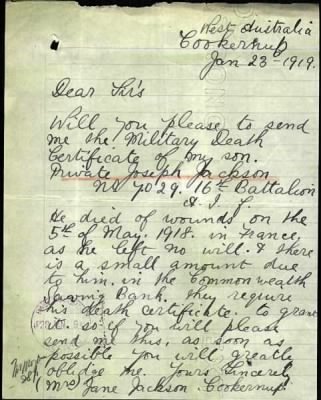 West Australia
Cookernup
Jan 23-1919.
Dear Sir's
Will you please to send
me the Military Death
Certificate of my son.
Private Joseph Jackson
No 7029. 16th Battalion
A. I. F.
He died of wounds on the
5th of May. 1918. in France,
as he left no will. & there
is a small amount due
to him, in the Commonwealth
Saving Bank. they require
this death certificate. to grant
it. so if you will please
send me this, as soon as
possible you will greatly
oblidge me. yours Sincerely
(Mrs Jane Jackson. Cookernup.